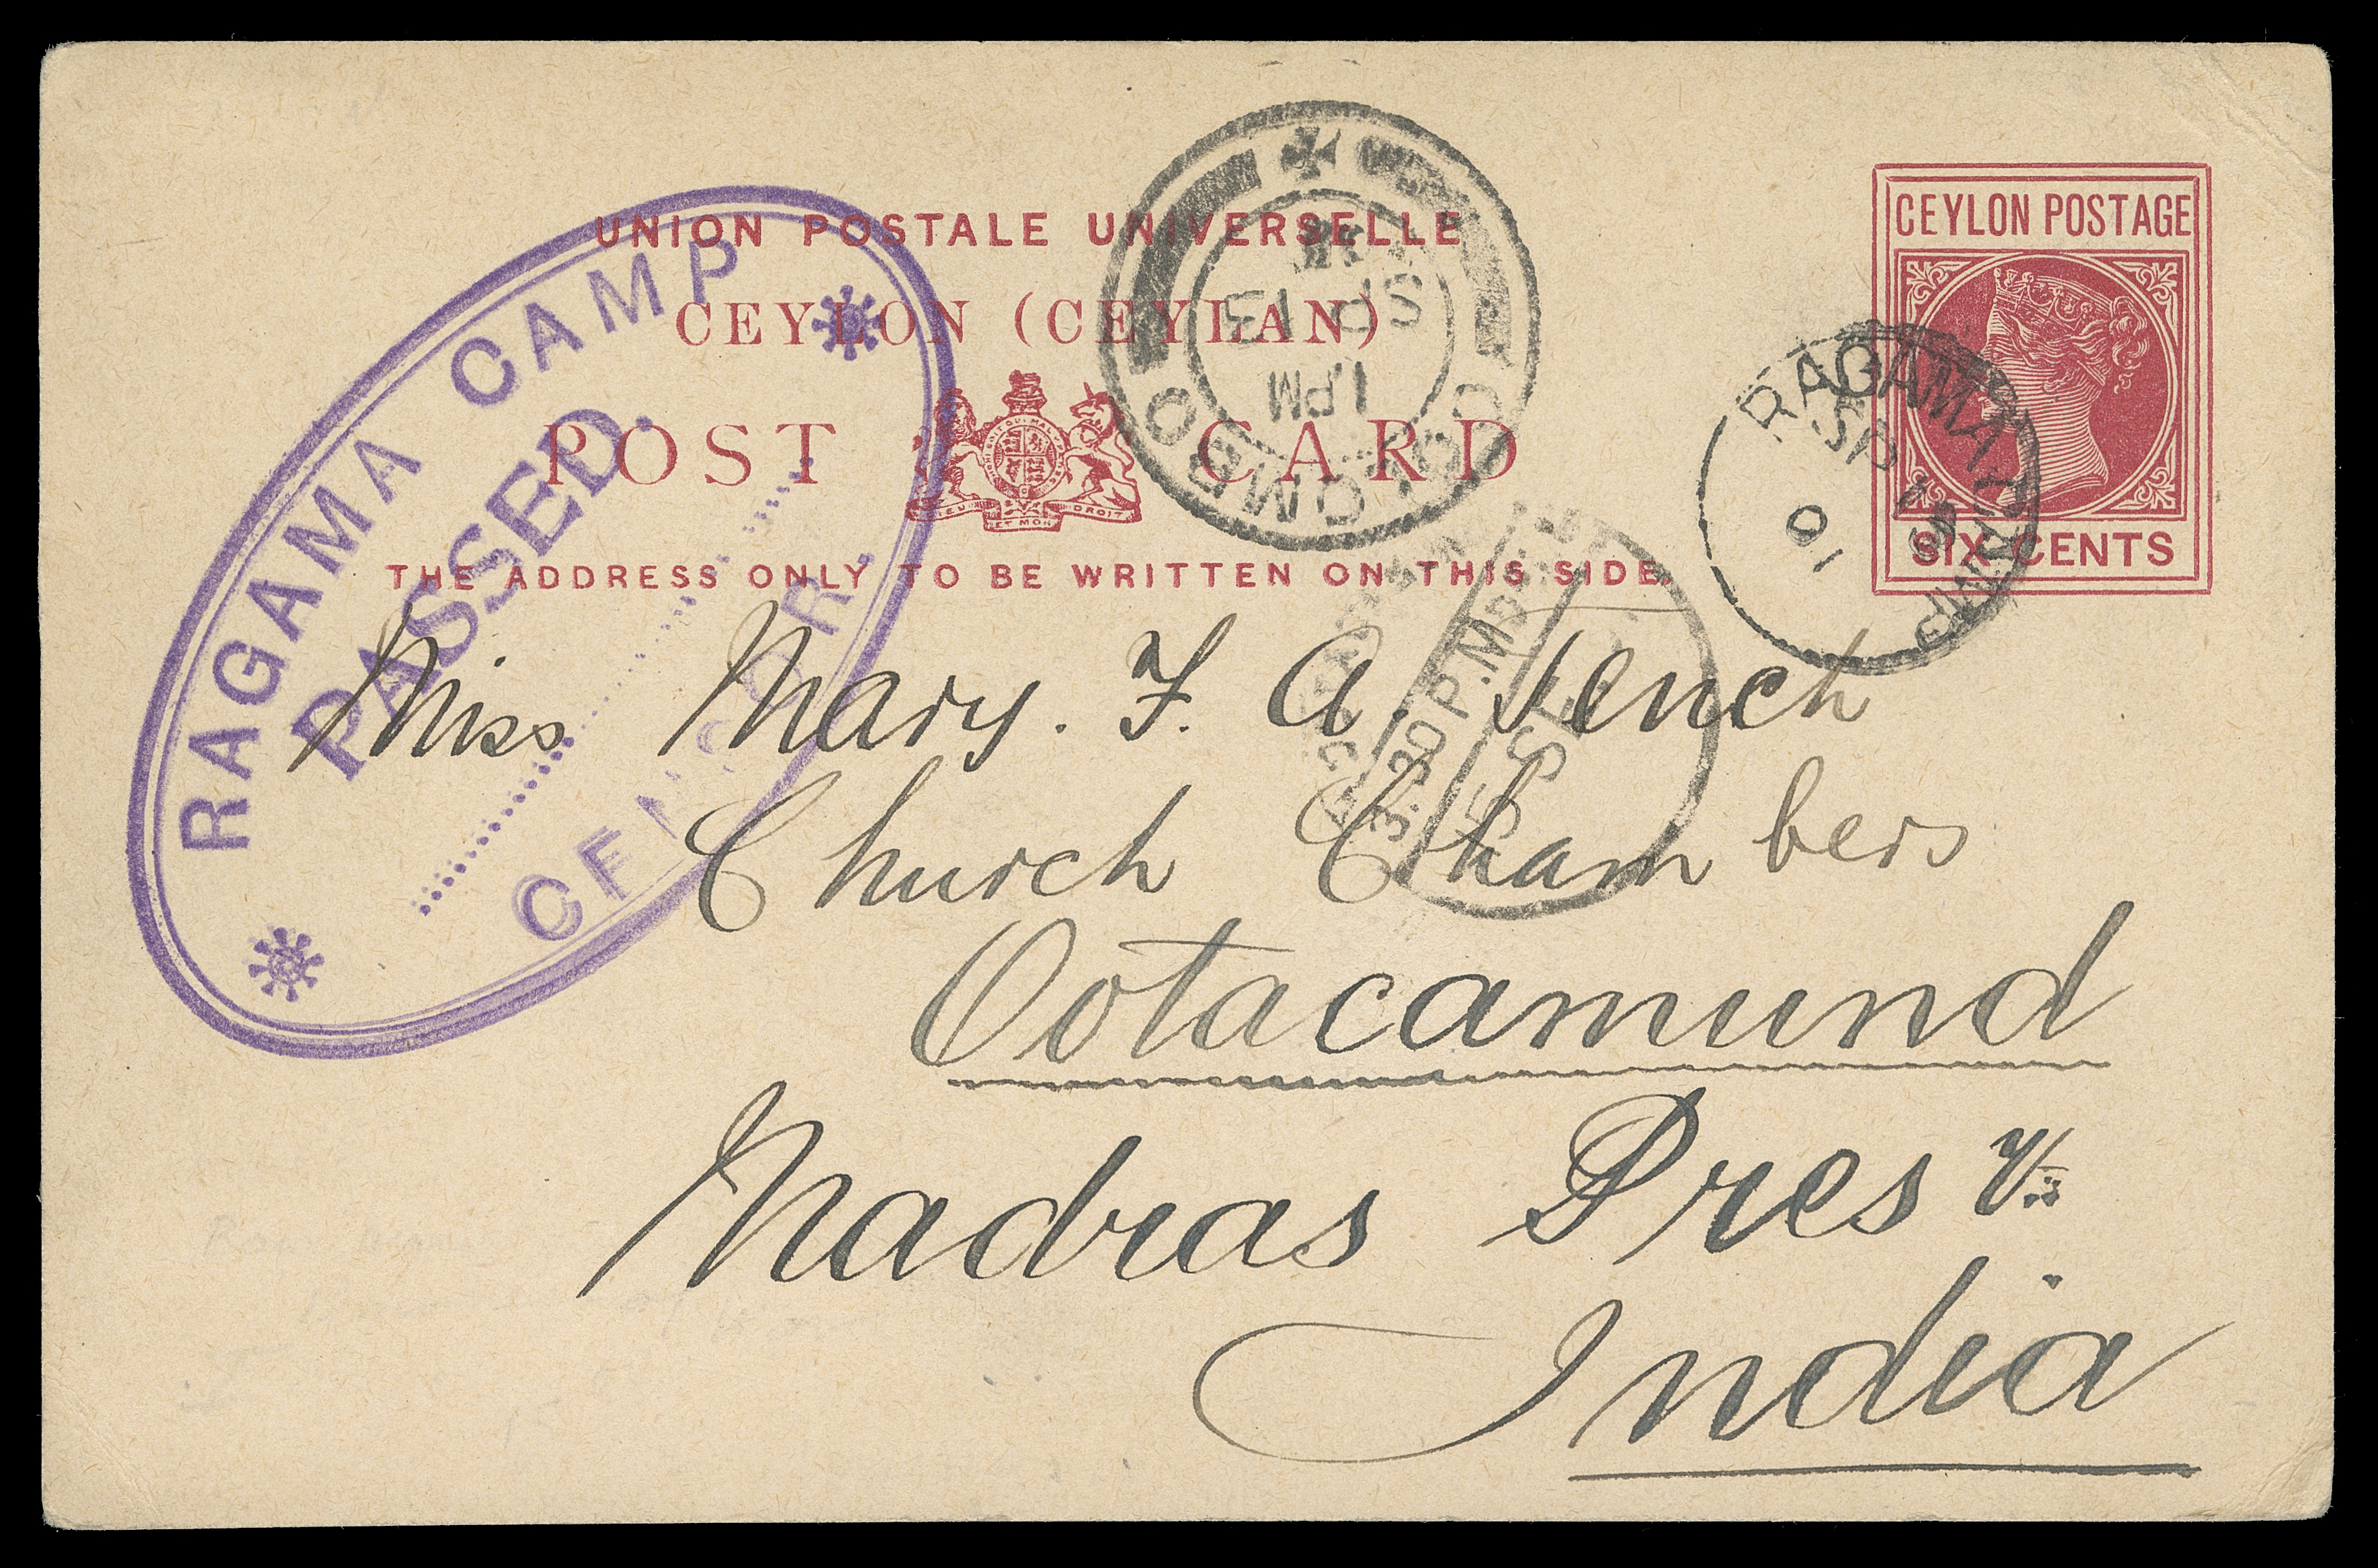 UNION POSTALE UNIVERSELLE
CEYLON (CEYLAN)
POST CARD
THE ADDRESS ONLY TO BE WRITTEN ON THIS SIDE.
CEYLON POSTAGE
SIX CENTS
RAGAMA CAMP
PASSED.
CENSOR.
COLOMBO
1 PM
SP 13
RAGAMA CAMP
SP
01
3.30 P.M.
15 SE
Miss Mary. F. A. Tench
Church Chambers
Ootacamund
Madras Pres y
India